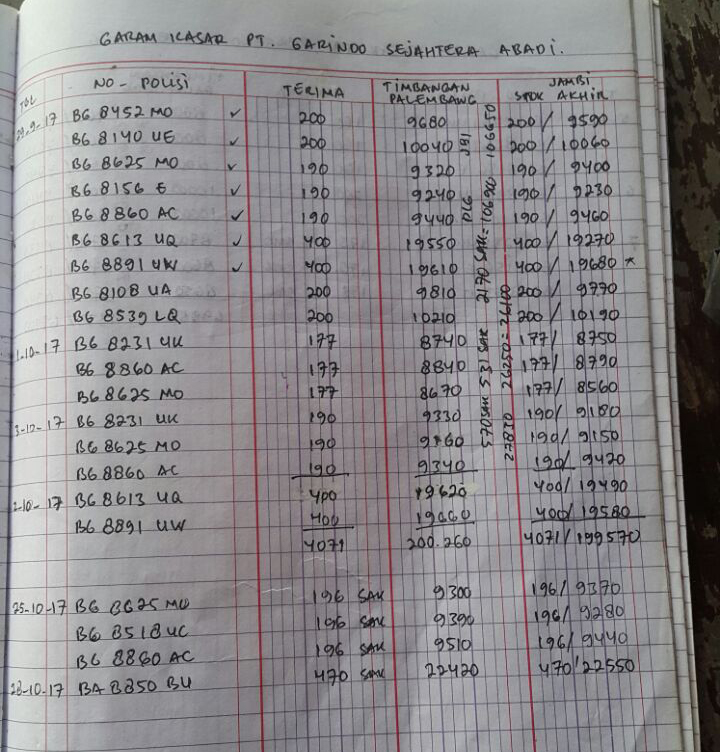 GARAM KASAR PT. GARINDO SEJAHTERA ABADI.
TGL NO-POLISI TERIMA TIMBANGAN PALEMBANG JAMBI STOK AKHIR
29-9-17 BG 8452 MO ✓ 200 9680 200/ 9590
BG 8140 UE 200 10040 200/ 10060
BG 8625 MO ✓ 190 9320 190/ 9400
BG 8156 E ✓ 190 9240 190/ 9230
BG 8860 AC ✓ 190 9440 190/ 9460
BG 8613 UQ ✓ 400 19550 400/ 19270
BG 8891 UW ✓ 400 19610 400/ 19680 *
BG 8108 UA 200 9810 200/ 9770
BG 8539 LQ 200 10210 200/ 10190
1-10-17 BG 8231 UK 177 8740 177/ 8750
BG 8860 AC 177 8840 177/ 8790
BG 8625 MO 177 8670 177/ 8560
3-10-17 BG 8231 UK 190 9330 190/ 9180
BG 8625 MO 190 190/ 9150
BG 8860 AC 190 9340 190/ 9420
2-10-17 BG 8613 UQ 400 19620 400/ 19490
BG 8891 UW 400 19660 400/ 19580
4071 200.260 4071/ 199570
25-10-17 BG 8625 MO 196 SAK 9300 196/ 9370
BG 8518 UC 196 SAK 9390 196/ 9280
BG 8860 AC 196 SAK 9510 196/ 9440
28-10-17 BA 8850 BU 470 SAK 22420 470/ 22550
JBI 106650
PLG 2170 SAK = 106920
570 SAK 531 SAK
27830 26250 = 26100